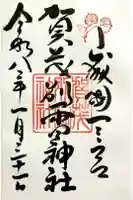 山城國一之宮
賀茂別雷神社
令和八年一月三十一日